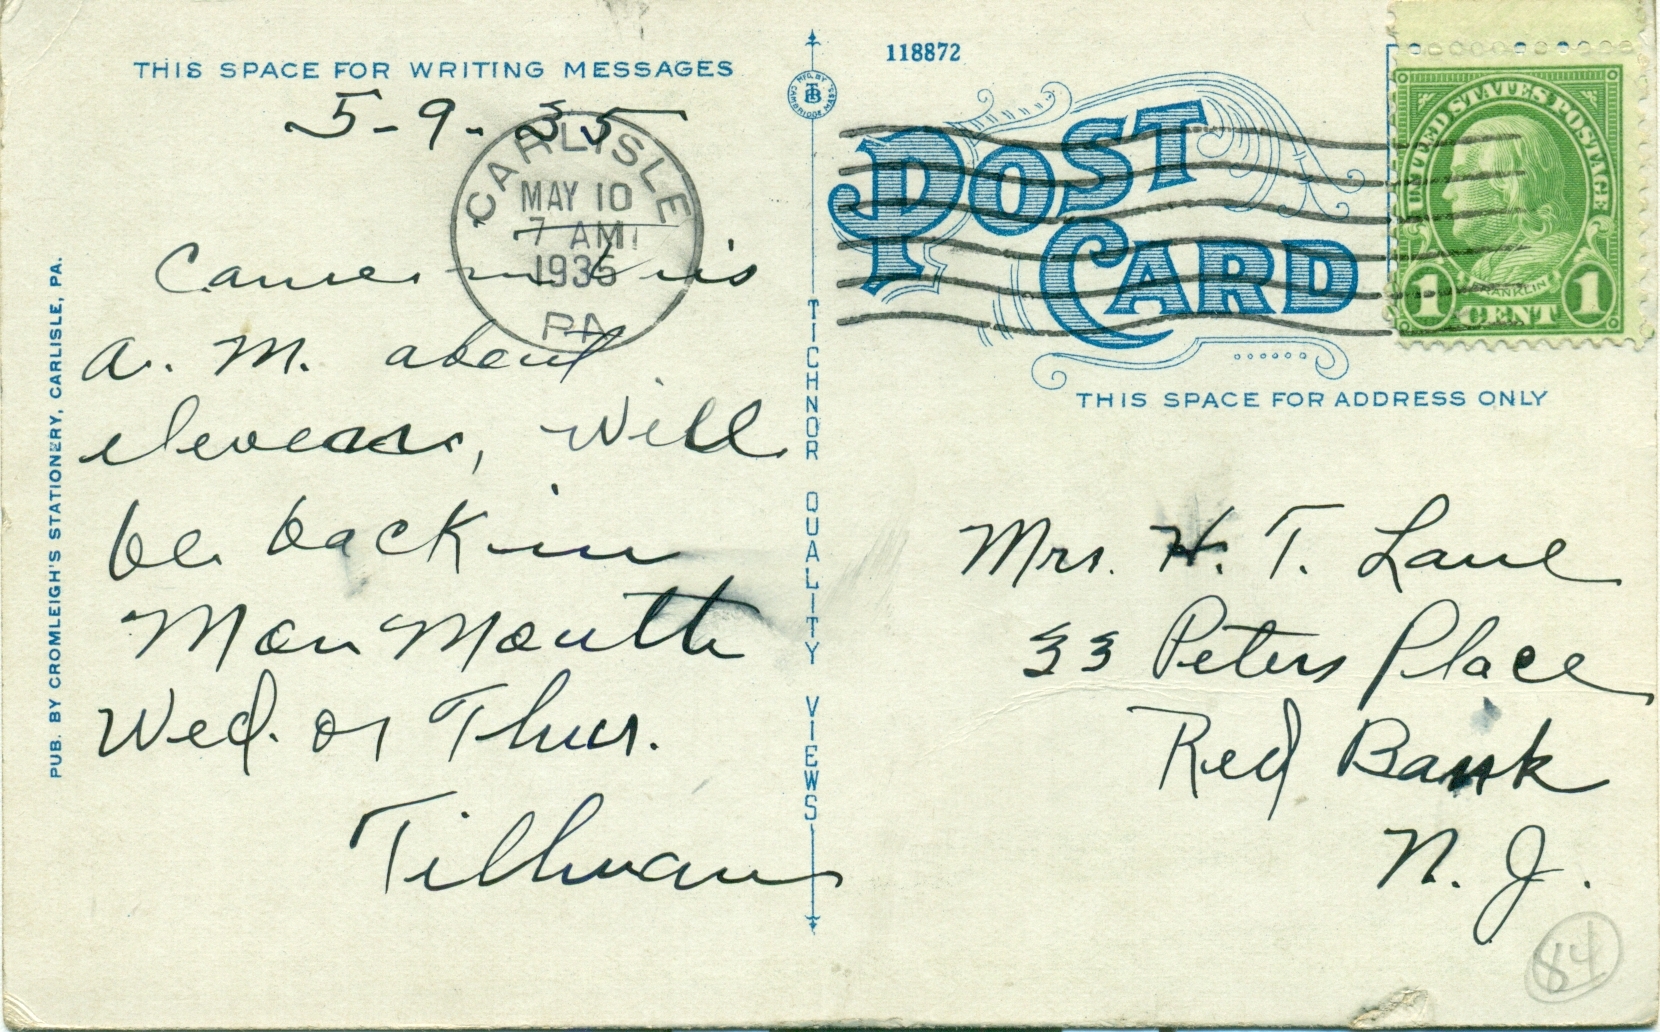 THIS SPACE FOR WRITING MESSAGES
5-9-35
CARLISLE
MAY 10
7 AM
1935
PA
Came in this
A. M. about
eleven, Will
be back in
Mon Mouth
Wed. or Thur.
Tillman
PUB. BY CROMLEIGH'S STATIONERY, CARLISLE, PA.
MFG. BY
TB
CAMBRIDGE, MASS.
TICHNOR QUALITY VIEWS
118872
POST
CARD
THIS SPACE FOR ADDRESS ONLY
UNITED STATES POSTAGE
FRANKLIN
1 CENT 1
Mrs. H. T. Lane
33 Peters Place
Red Bank
N. J.
84